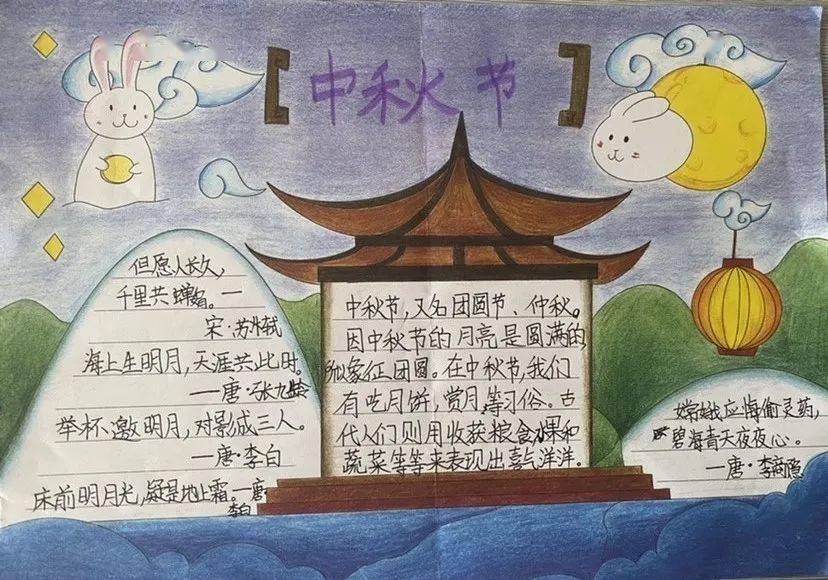 【中秋节】
但愿人长久，
千里共婵娟。一
宋·苏轼
海上生明月，天涯共此时。
——唐·张九龄
举杯邀明月，对影成三人。
——唐·李白
床前明月光，疑是地上霜。——唐·
李白
中秋节，又名团圆节、仲秋。
因中秋节的月亮是圆满的，
象征团圆。在中秋节，我们
有吃月饼，赏月等习俗。古
代人们则用收获粮食水果和
蔬菜等等来表现出喜气洋洋。
嫦娥应悔偷灵药，
碧海青天夜夜心。
——唐·李商隐